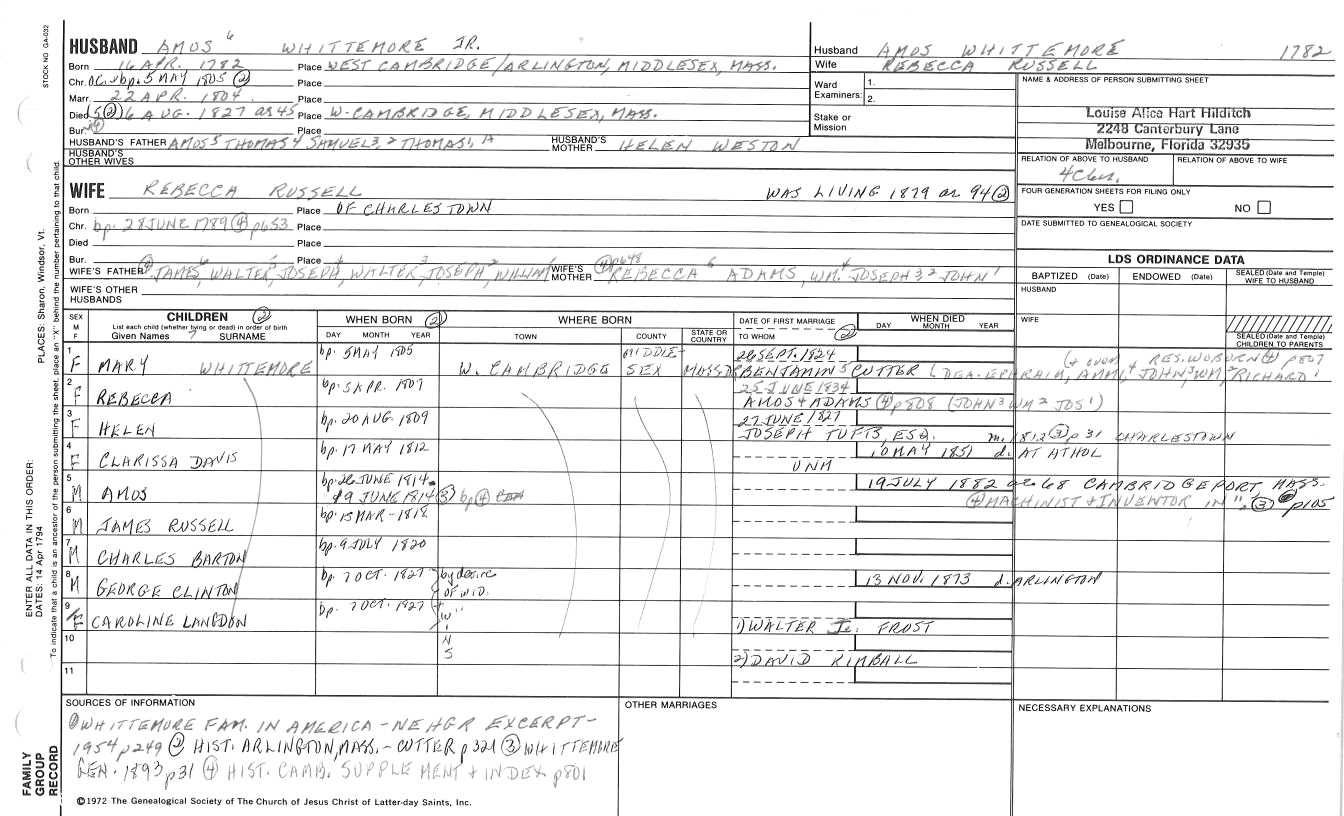 STOCK NO GA-032
HUSBAND AMOS 6 WHITTEMORE JR.
Born 16 APR. 1782 Place WEST CAMBRIDGE/ARLINGTON, MIDDLESEX, MASS.
Chr. O.C. & bp. 5 MAY 1805 (2) Place
Marr. 22 APR. 1804 Place
Died 6 AUG. 1827 ae 45 Place W. CAMBRIDGE, MIDDLESEX, MASS.
Bur. Place
HUSBAND'S FATHER AMOS 5 THOMAS 4 SAMUEL 3, 2 THOMAS 1, 1A HUSBAND'S MOTHER HELEN WESTON
HUSBAND'S OTHER WIVES
WIFE REBECCA RUSSELL WAS LIVING 1879 ae 94 (2)
Born Place OF CHARLESTOWN
Chr. bp. 28 JUNE 1789 (4) p653 Place
Died Place
Bur. Place
WIFE'S FATHER (4) JAMES 6 WALTER 5 JOSEPH 4 WALTER 3 JOSEPH 2 WILLIM 1 WIFE'S MOTHER (4) p648 REBECCA 6 ADAMS, WM. 4 JOSEPH 3, 2 JOHN 1
WIFE'S OTHER HUSBANDS
Husband AMOS WHITTEMORE 1782
Wife REBECCA RUSSELL
Ward Examiners: 1.
2.
Stake or Mission
NAME & ADDRESS OF PERSON SUBMITTING SHEET
Louise Alice Hart Hilditch
2248 Canterbury Lane
Melbourne, Florida 32935
RELATION OF ABOVE TO HUSBAND RELATION OF ABOVE TO WIFE
FOUR GENERATION SHEETS FOR FILING ONLY
YES NO
DATE SUBMITTED TO GENEALOGICAL SOCIETY
LDS ORDINANCE DATA
BAPTIZED (Date) ENDOWED (Date) SEALED (Date and Temple) WIFE TO HUSBAND
HUSBAND
WIFE
SEALED (Date and Temple) CHILDREN TO PARENTS
SEX M F CHILDREN (2) WHEN BORN (2) WHERE BORN DATE OF FIRST MARRIAGE WHEN DIED
List each child (whether living or dead) in order of birth
Given Names 7 SURNAME DAY MONTH YEAR TOWN COUNTY STATE OR COUNTRY TO WHOM (2) DAY MONTH YEAR
1 F MARY WHITTEMORE bp. 5 MAY 1805 W. CAMBRIDGE MIDDLESEX MASS 26 SEPT. 1824 RES. WOBURN (4) p807
BENJAMIN 5 CUTTER (DEA. EPHRAIM, AMM. 4 JOHN 3 WM 2 RICHARD 1
2 F REBECCA bp. 5 APR. 1807 25 JUNE 1834
AMOS 4 ADAMS (4) p808 (JOHN 3 WM 2 JOS 1)
3 F HELEN bp. 20 AUG 1809 27 JUNE 1827
JOSEPH TUFTS, ESQ. m. 1812 (3) p31 CHARLESTOWN
4 F CLARISSA DAVIS bp. 17 MAY 1812 UNM 10 MAY 1851 d. AT ATHOL
5 M AMOS bp. 26 JUNE 1814 19 JULY 1882 ae 68 CAMBRIDGEPORT, MASS.
19 JUNE 1814 (3) bp (4) (4) MACHINIST & INVENTOR IN ". (3) p105
6 M JAMES RUSSELL bp. 15 MAR - 1818
7 M CHARLES BARTON bp. 9 JULY 1820
8 M GEORGE CLINTON bp. 7 OCT. 1827 by desire OF WID. 13 NOV. 1873 d. ARLINGTON
9 F CAROLINE LANGDON bp. 7 OCT. 1827 "
TWINS
1) WALTER FROST
10
2) DAVID KIMBALL
11
SOURCES OF INFORMATION
(1) WHITTEMORE FAM. IN AMERICA - NEHGR EXCERPT -
1954 p249 (2) HIST. ARLINGTON, MASS. - CUTTER p321 (3) WHITTEMORE
GEN. 1893 p31 (4) HIST. CAMB. SUPPLEMENT & INDEX p801
OTHER MARRIAGES
NECESSARY EXPLANATIONS
©1972 The Genealogical Society of The Church of Jesus Christ of Latter-day Saints, Inc.
ENTER ALL DATA IN THIS ORDER:
DATES: 14 Apr 1794 PLACES: Sharon, Windsor, Vt.
To indicate that a child is an ancestor of the person submitting the sheet, place an "X" behind the number pertaining to that child.
FAMILY GROUP RECORD